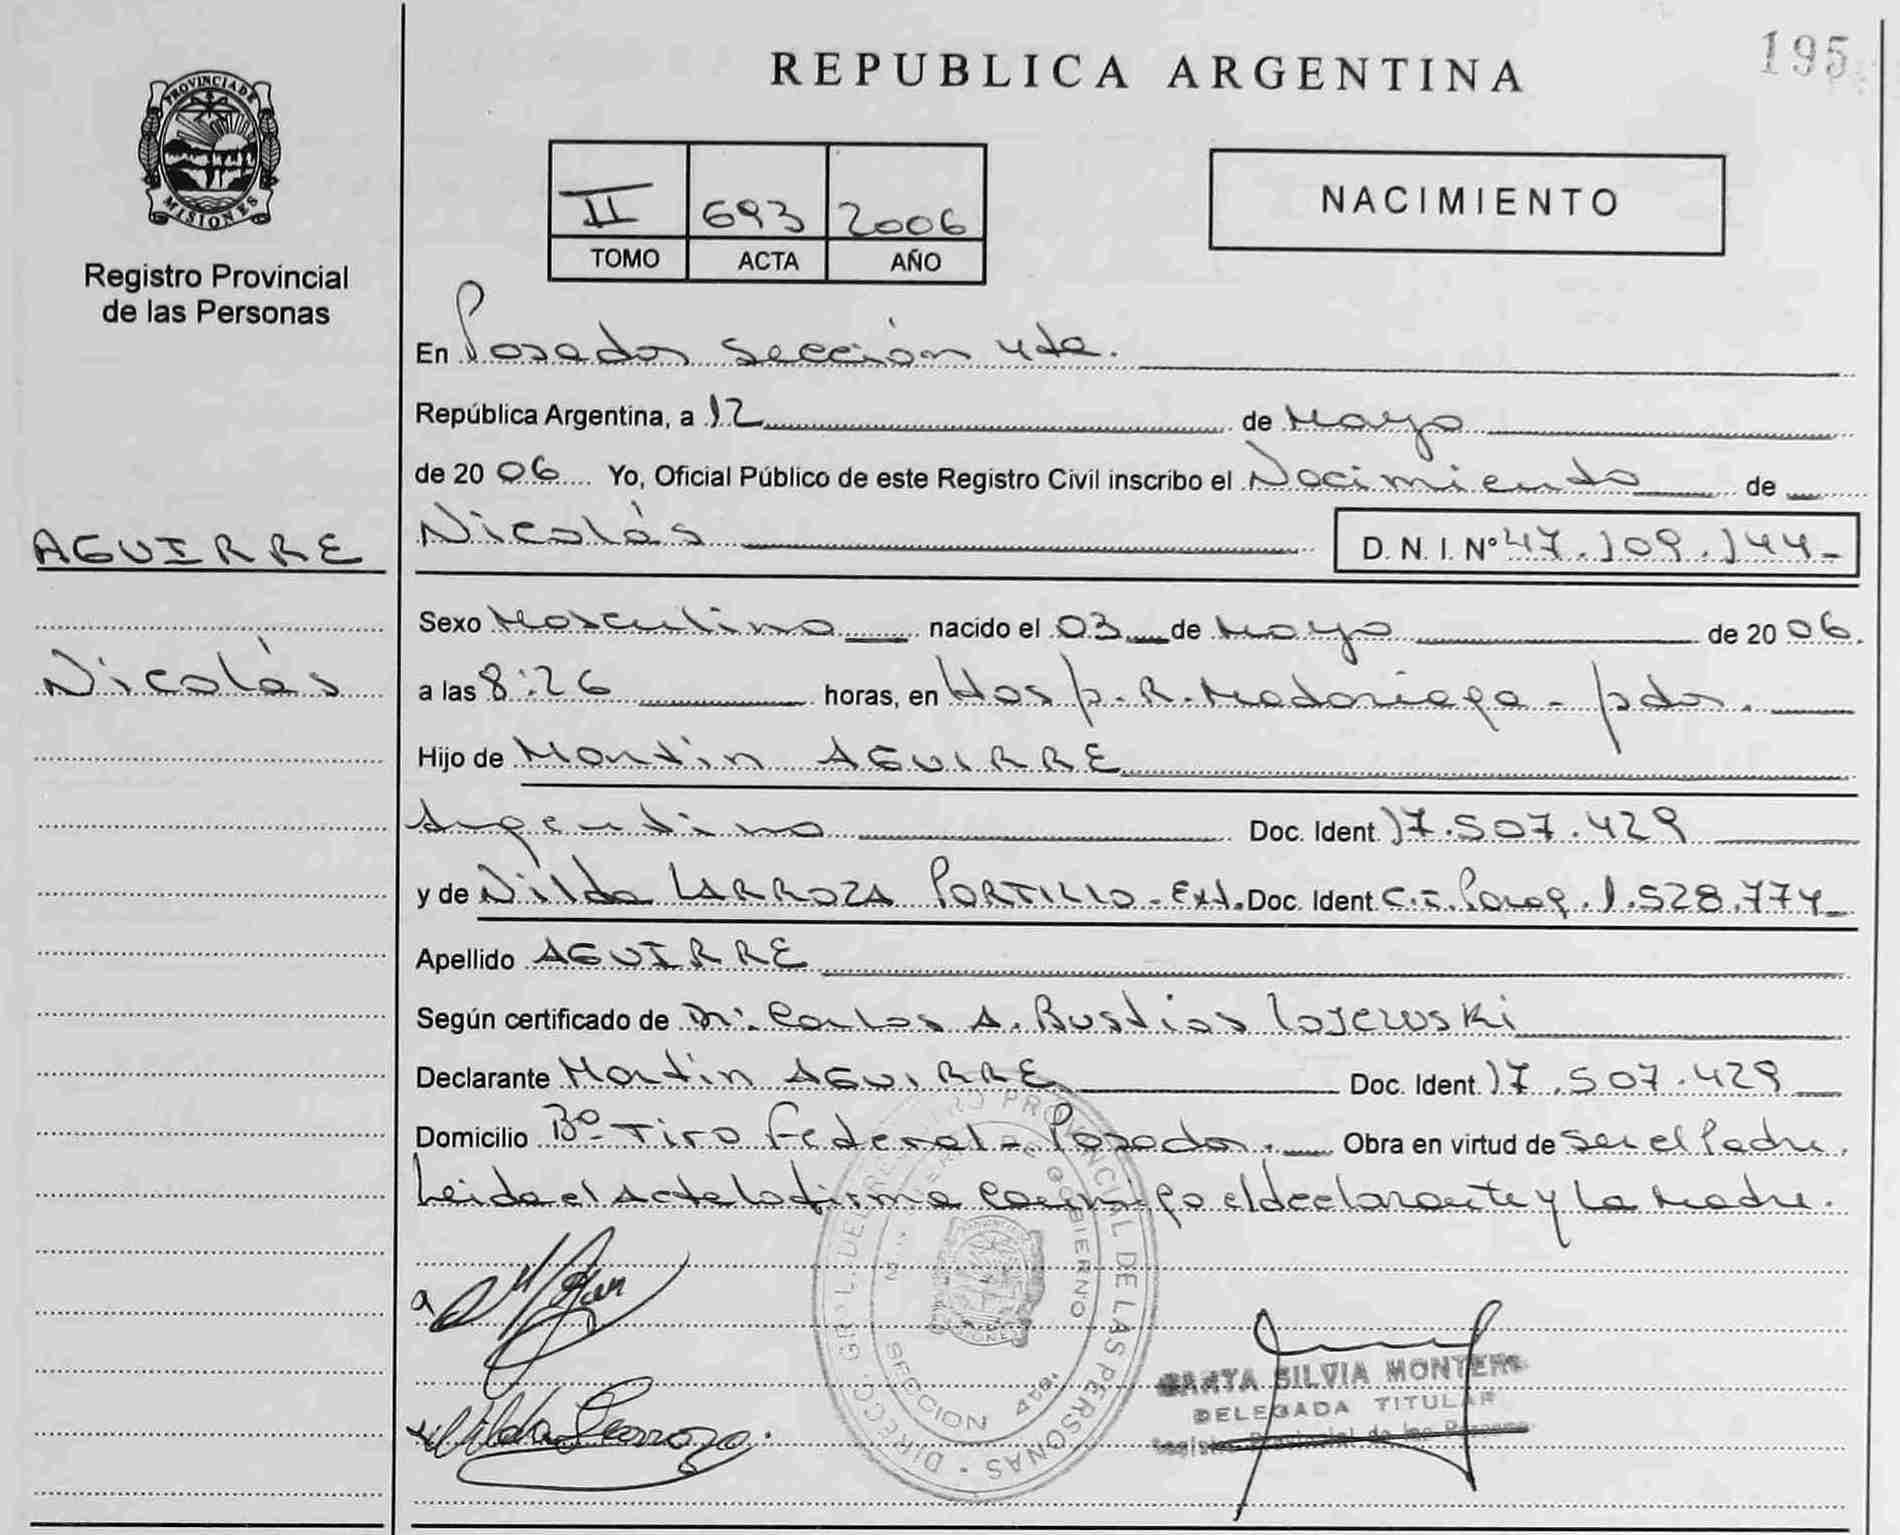 195
REPUBLICA ARGENTINA
PROVINCIA DE
MISIONES
Registro Provincial
de las Personas
II 693 2006
TOMO ACTA AÑO
NACIMIENTO
En Posadas Sección 4ta.
República Argentina, a 12 de Mayo
de 2006 Yo, Oficial Público de este Registro Civil inscribo el Nacimiento de
AGUIRRE
Nicolás
Nicolás D. N. I. Nº 47.109.144-
Sexo Masculino nacido el 03 de Mayo de 2006.
a las 8:26 horas, en Hosp. R. Madariaga - pdas.
Hijo de Martín AGUIRRE
Argentino Doc. Ident. 17.507.429
y de Nilda LARROZA PORTILLO - Ext. Doc. Ident. C.I. Parag. 1.528.774-
Apellido AGUIRRE
Según certificado de Dr. Carlos A. Bustios Lojewski
Declarante Martín AGUIRRE Doc. Ident. 17.507.429
Domicilio Bº- Tiro Federal - Posadas. Obra en virtud de ser el Padre.
Leida el Acta la firma conmigo el declarante y la madre.
DIRECC. GRAL. DEL REGISTRO PROVINCIAL DE LAS PERSONAS
GOBIERNO
SECCION 4ta.
Nilda Larroza.
SANTA SILVIA MONTERO
DELEGADA TITULAR
Registro Provincial de las Personas